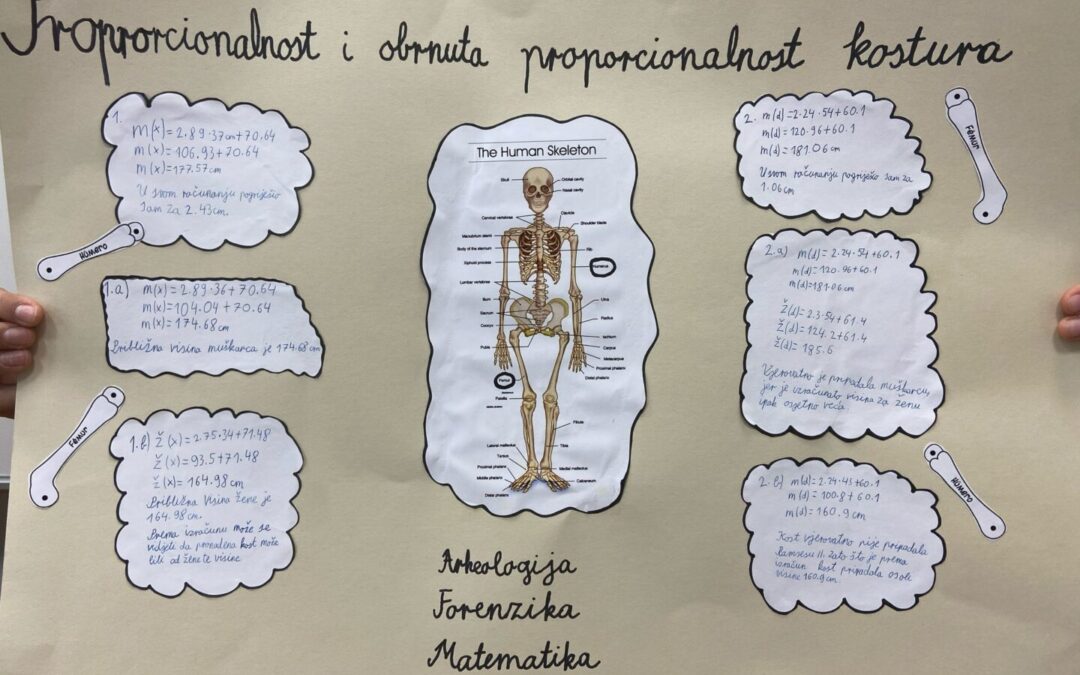 Proprorcionalnost i obrnuta proporcionalnost kostura
1.
m(x)=2.89·37cm+70.64
m(x)=106.93+70.64
m(x)=177.57cm
U svom računanju pogriješio
sam za 2.43cm.
Humero
1.a) m(x)=2.89·36+70.64
m(x)=104.04+70.64
m(x)=174.68cm
Približna visina muškarca je 174.68cm
Femur
1.b) Ž(x)=2.75·34+71.48
Ž(x)=93.5+71.48
Ž(x)=164.98cm
Približna visina žene je
164.98cm.
Prema izračunu može se
vidjeti da pronađena kost može
biti od žene te visine
The Human Skeleton
Skull
Orbital cavity
Nasal cavity
Cervical vertebrae
Clavicle
Shoulder blade
Manubrium sterni
Body of the sternum
Rib
Xiphoid process
Humerus
Lumbar vertebrae
Ilium
Ulna
Sacrum
Radius
Coccyx
Ischium
Pubis
Carpus
Metacarpus
Proximal phalanx
Distal phalanx
Femur
Patella
Fibula
Lateral malleolus
Tibia
Tarsus
Proximal phalanx
Medial malleolus
Middle phalanx
Calcaneum
Distal phalanx
Arheologija
Forenzika
Matematika
2. m(d)=2·24·54+60.1
m(d)=120·96+60.1
m(d)=181.06cm
U svom računanju pogriješio sam za
1.06cm
Femur
2.a) m(d)=2·24·54+60.1
m(d)=120·96+60.1
m(d)=181·06cm
Ž(d)=2.3·54+61.4
Ž(d)=124.2+61.4
Ž(d)=185.6
Vjerovatno je pripadala muškarcu,
jer je izračunato visina za ženu
ipak osjetno veća.
Humero
2.b) m(d)=2.24·45+60.1
m(d)=100.8+60.1
m(d)=160.9cm
Kost vjerovatno nije pripadala
Ramsesu II. Zato što je prema
izračun kost pripadala osobi
visine 160.9cm.